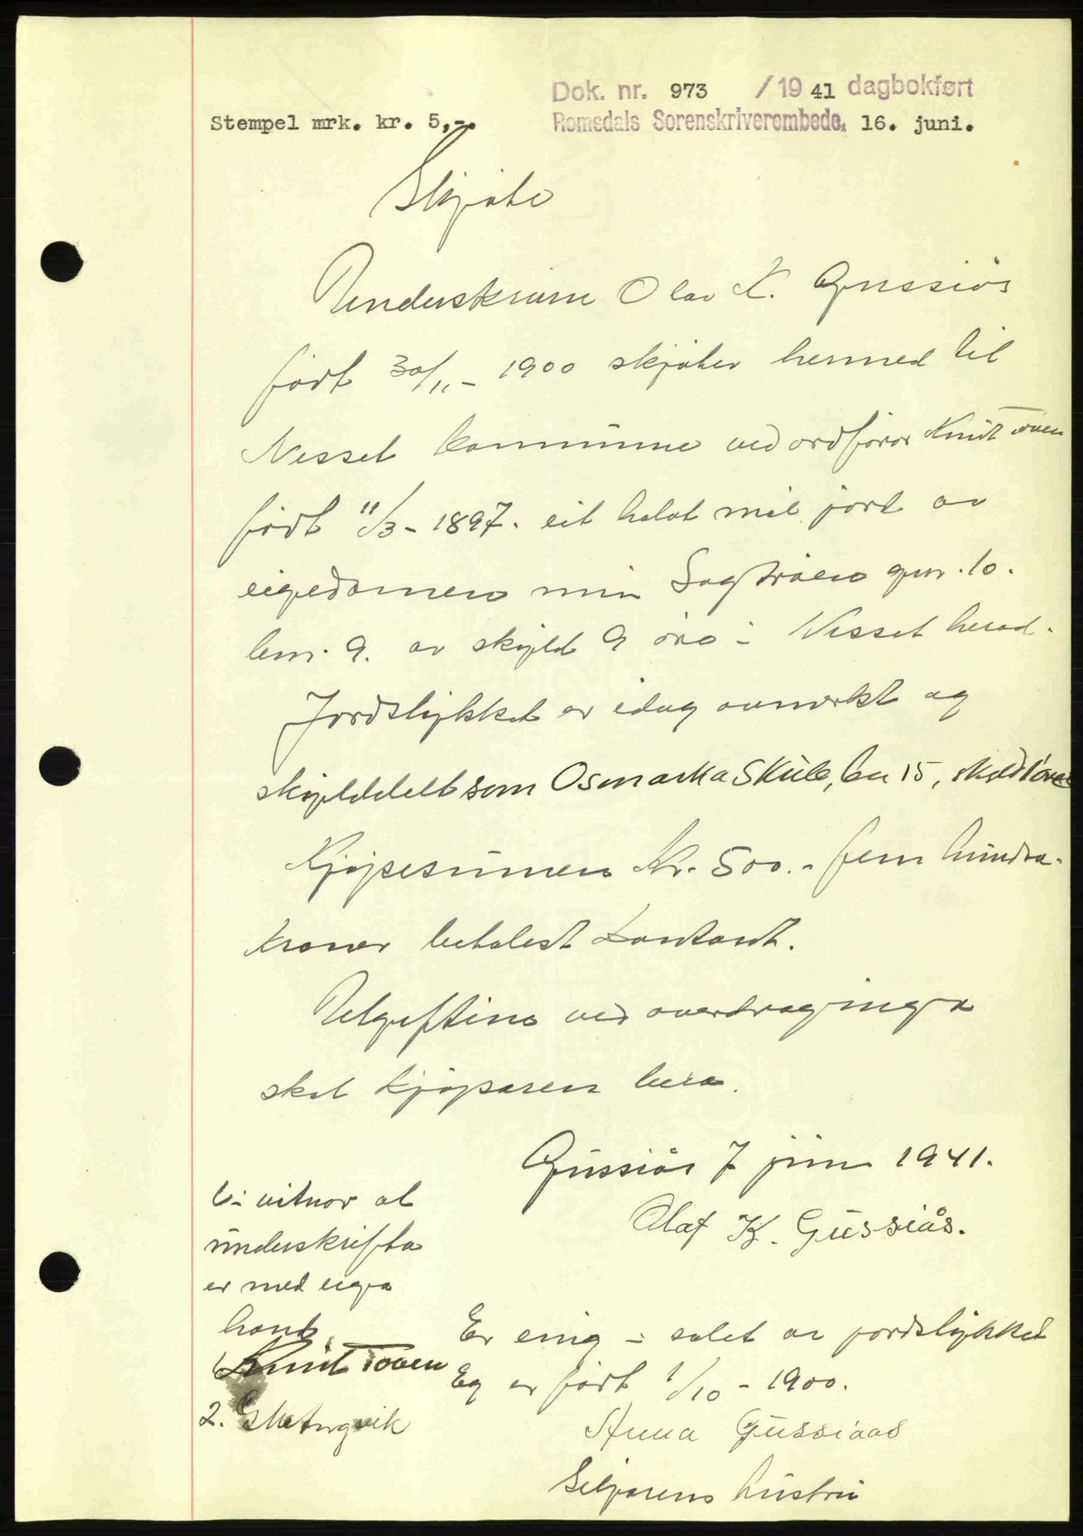 Dok. nr. 973 /1941 dagbokført
Stempel mrk. kr. 5,-. Romsdals Sorenskriverembede, 16. juni.
Skjøte
Underskrivne Olav K. Gussiås
født 30/11 - 1900 skjøter hermed til
Nesset kommune ved ordførar Knut Toven
født 11/3 - 1897. eit halvt mål jord av
eigedomen min gnr. 10.
bnr. 9. av skyld 9 øre i Nesset herad.
Jordstykket er idag avmerkt og
skylddelt som Osmarka Skule, bnr 15, skyld 1 øre
Kjøpesumen Kr. 500.- fem hundra-
kroner betalest kontant.
Utgiftene ved overdraginga
skal kjøparen bera.
Gussiås 7 juni 1941.
Olaf K. Gussiås.
Vi vitnar at
underskrifta
er med eiga
hand.
1. Knut Toven
2.
Er einig i salet av jordstykket
Eg er født 1/10 - 1900.
Anna Gussiaas
Seljarens hustru